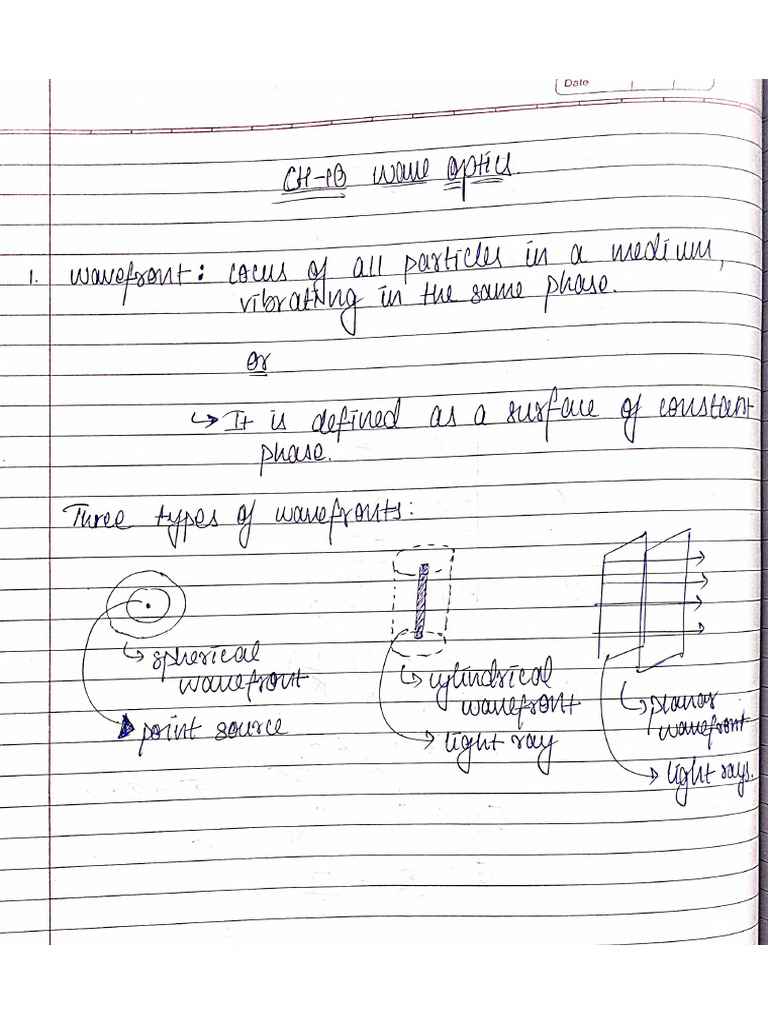 Date
CH-1B wave optics.
1. wavefront: Locus of all particles in a medium,
vibrating in the same phase.
or
↳ It is defined as a surface of constant
phase.
Three types of wavefronts:
↳ spherical
wavefront
point source
↳ cylindrical
wavefront
light ray
↳ planar
wavefront
light rays.